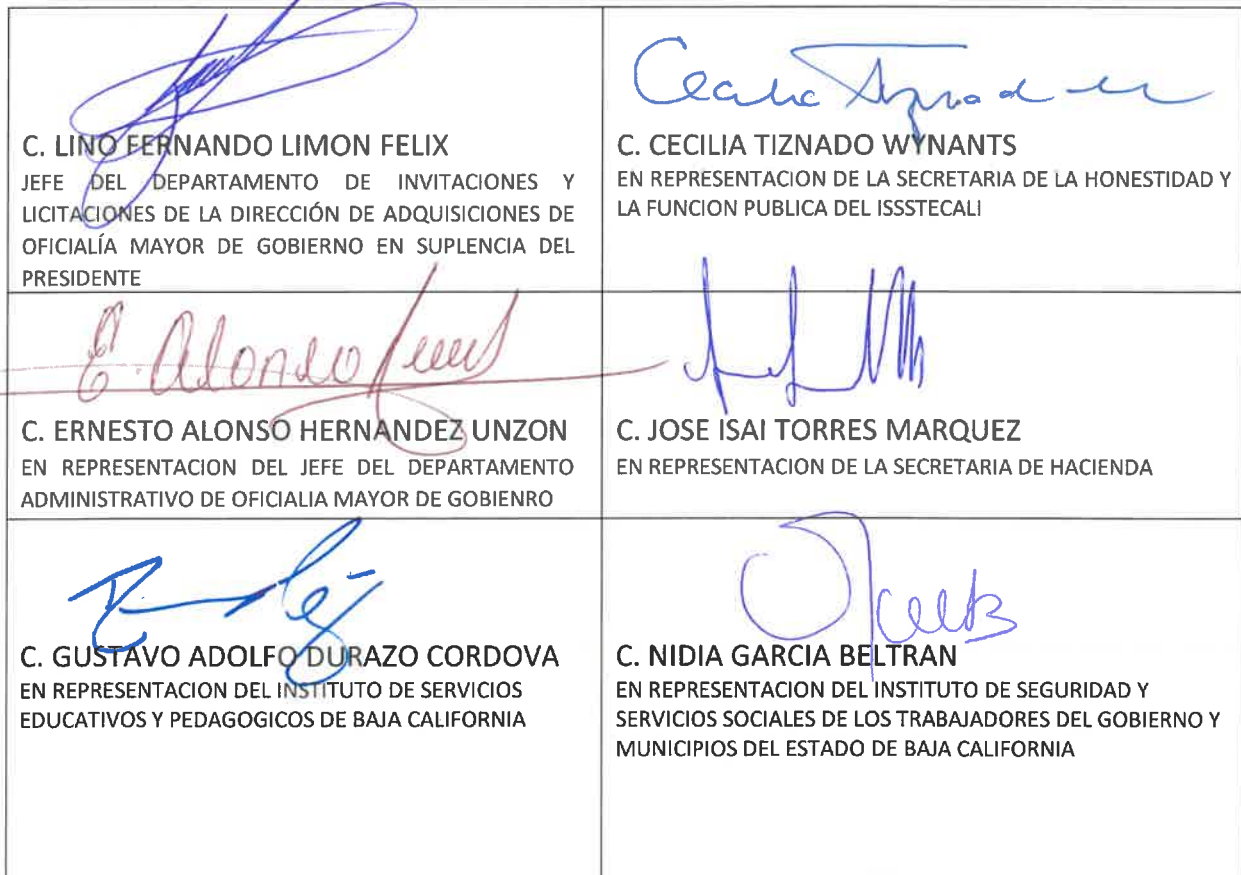 C. LINO FERNANDO LIMON FELIX
JEFE DEL DEPARTAMENTO DE INVITACIONES Y
LICITACIONES DE LA DIRECCIÓN DE ADQUISICIONES DE
OFICIALÍA MAYOR DE GOBIERNO EN SUPLENCIA DEL
PRESIDENTE
C. CECILIA TIZNADO WYNANTS
EN REPRESENTACION DE LA SECRETARIA DE LA HONESTIDAD Y
LA FUNCION PUBLICA DEL ISSSTECALI
E. Alonso
C. ERNESTO ALONSO HERNANDEZ UNZON
EN REPRESENTACION DEL JEFE DEL DEPARTAMENTO
ADMINISTRATIVO DE OFICIALIA MAYOR DE GOBIENRO
C. JOSE ISAI TORRES MARQUEZ
EN REPRESENTACION DE LA SECRETARIA DE HACIENDA
C. GUSTAVO ADOLFO DURAZO CORDOVA
EN REPRESENTACION DEL INSTITUTO DE SERVICIOS
EDUCATIVOS Y PEDAGOGICOS DE BAJA CALIFORNIA
C. NIDIA GARCIA BELTRAN
EN REPRESENTACION DEL INSTITUTO DE SEGURIDAD Y
SERVICIOS SOCIALES DE LOS TRABAJADORES DEL GOBIERNO Y
MUNICIPIOS DEL ESTADO DE BAJA CALIFORNIA